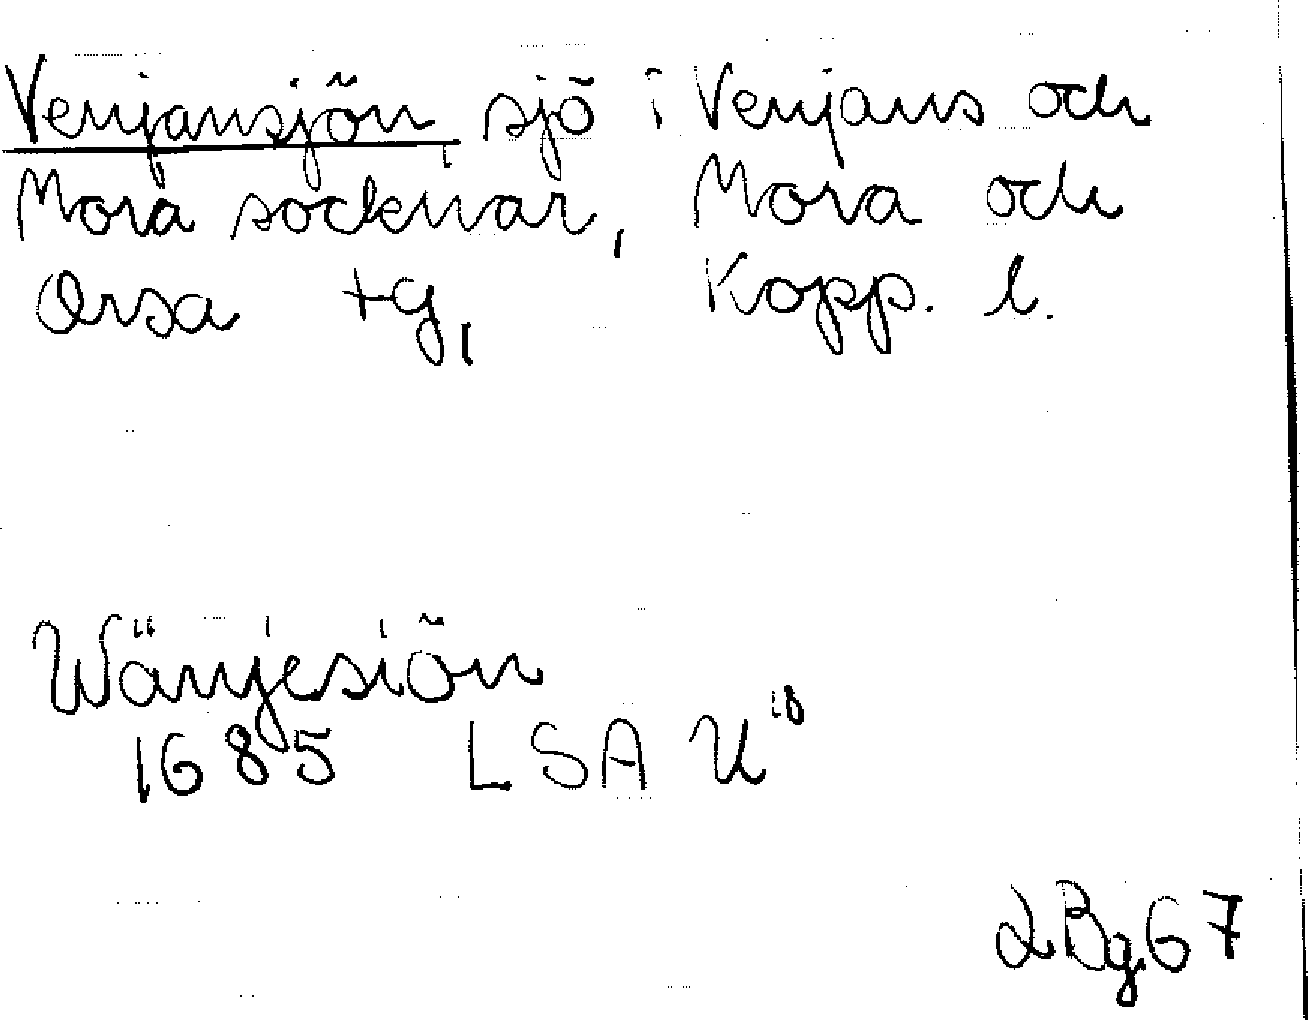 Venjansjön sjö i Venjans och
Mora socknar, Mora och
Orsa tg, Kopp. l.
Wänjesiön
1685 LSA U¹⁸
2Bg67